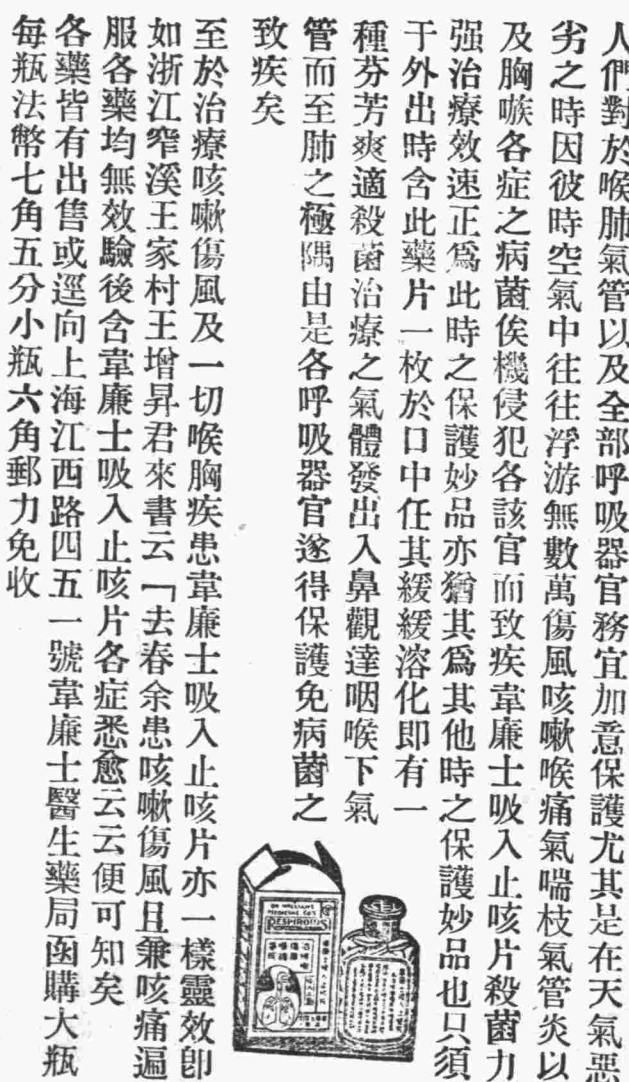 人們對於喉肺氣管以及全部呼吸器官務宜加意保護尤其是在天氣惡
劣之時因彼時空氣中往往浮游無數萬傷風咳嗽喉痛氣喘枝氣管炎以
及胸嗽各症之病菌俟機侵犯各該官而致疾韋廉士吸入止咳片殺菌力
强治療效速正爲此時之保護妙品亦猶其爲其他時之保護妙品也只須
于外出時含此藥片一枚於口中任其緩緩溶化即有一
種芬芳爽適殺菌治療之氣體發出入鼻觀達咽喉下氣
管而至肺之極隅由是各呼吸器官遂得保護免病菌之
致疾矣
至於治療咳嗽傷風及一切喉胸疾患韋廉士吸入止咳片亦一樣靈效卽
如浙江窄溪王家村王增昇君來書云「去春余患咳嗽傷風且兼咳痛遍
服各藥均無效驗後含韋廉士吸入止咳片各症悉愈云云便可知矣
各藥皆有出售或逕向上海江西路四五一號韋廉士醫生藥局函購大瓶
每瓶法幣七角五分小瓶六角郵力免收
DR WILLIAMS
MEDICINE CO'S